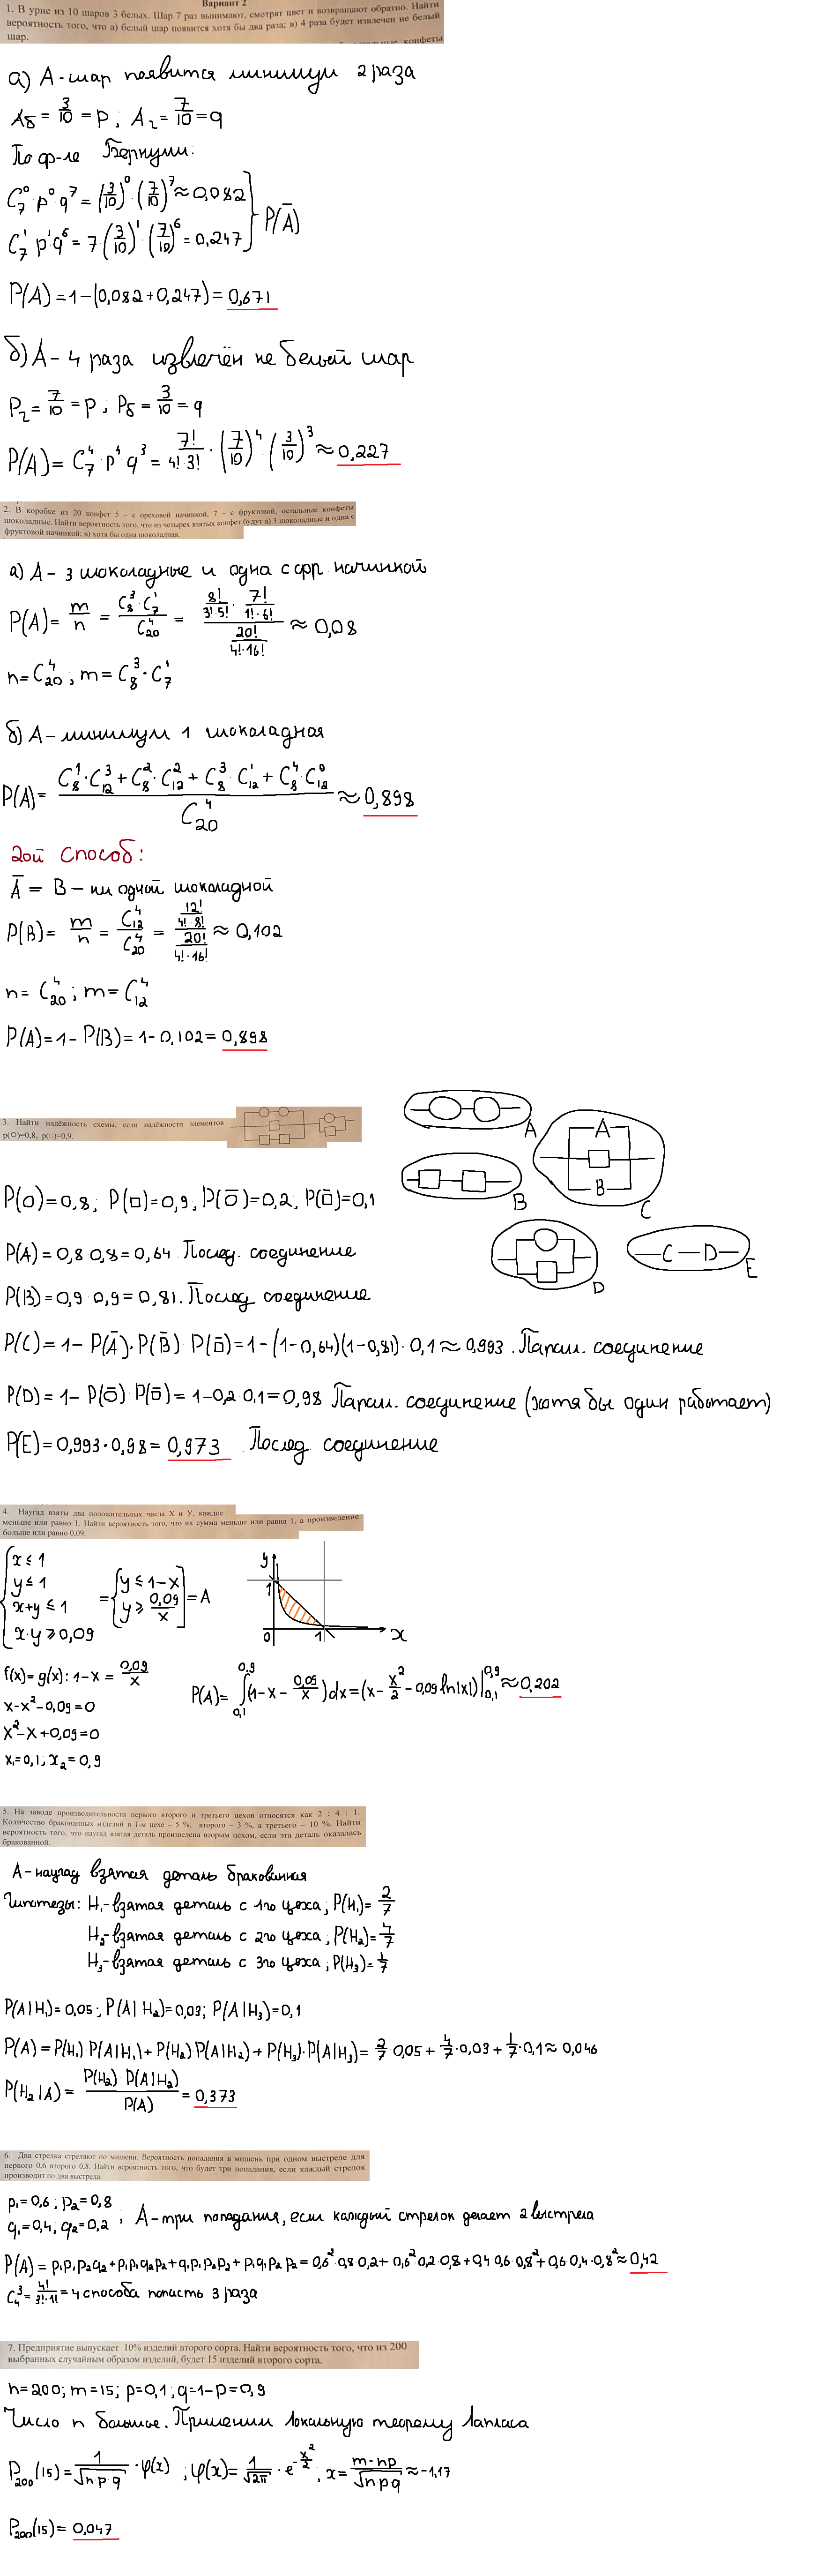 Вариант 2
1. В урне из 10 шаров 3 белых. Шар 7 раз вынимают, смотрят цвет и возвращают обратно. Найти
вероятность того, что а) белый шар появится хотя бы два раза; в) 4 раза будет извлечен не белый
шар.
конфеты
а) A - шар появится минимум 2 раза
Aб = 3/10 = p ; A2 = 7/10 = q
По ф-ле Бернули:
C₇⁰ · p⁰ · q⁷ = (3/10)⁰ · (7/10)⁷ ≈ 0,082
C₇¹ p¹ q⁶ = 7 · (3/10)¹ · (7/10)⁶ = 0,247 } P(Ā)
P(A) = 1 - (0,082 + 0,247) = 0,671
б) A - 4 раза извлечён не белый шар
P2 = 7/10 = p ; Pб = 3/10 = q
P(A) = C₇⁴ · p⁴ · q³ = 7!/4!·3! · (7/10)⁴ · (3/10)³ ≈ 0,227
2. В коробке из 20 конфет 5 – с ореховой начинкой, 7 – с фруктовой, остальные конфеты
шоколадные. Найти вероятность того, что из четырех взятых конфет будут а) 3 шоколадные и одна с
фруктовой начинкой; в) хотя бы одна шоколадная.
а) A - 3 шоколадные и одна с фр. начинкой
P(A) = m/n = C₈³·C₇¹/C₂₀⁴ = (8!/3!·5! · 7!/1!·6!)/(20!/4!·16!) ≈ 0,08
n = C₂₀⁴ ; m = C₈³ · C₇¹
б) A - минимум 1 шоколадная
P(A) = (C₈¹·C₁₂³ + C₈²·C₁₂² + C₈³·C₁₂¹ + C₈⁴·C₁₂⁰)/C₂₀⁴ ≈ 0,898
2ой способ:
Ā = B - ни одной шоколадной
P(B) = m/n = C₁₂⁴/C₂₀⁴ = (12!/4!·8!)/(20!/4!·16!) ≈ 0,102
n = C₂₀⁴ ; m = C₁₂⁴
P(A) = 1 - P(B) = 1 - 0,102 = 0,898
3. Найти надёжность схемы, если надёжности элементов
p(○)=0,8, p(□)=0,9.
A
A
B
B
C
D
C D
E
P(○) = 0,8; P(□) = 0,9; P(○̄) = 0,2; P(□̄) = 0,1
P(A) = 0,8·0,8 = 0,64. Послед. соединение
P(B) = 0,9·0,9 = 0,81. Послед соединение
P(C) = 1 - P(Ā)·P(B̄)·P(□̄) = 1 - (1-0,64)(1-0,81)·0,1 ≈ 0,993. Парал. соединение
P(D) = 1 - P(○̄)·P(□̄) = 1 - 0,2·0,1 = 0,98 Парал. соединение (хотя бы один работает)
P(E) = 0,993·0,98 = 0,973. Послед соединение
4. Наугад взяты два положительных числа X и У, каждое
меньше или равно 1. Найти вероятность того, что их сумма меньше или равна 1, а произведение
больше или равно 0,09.
{ x ≤ 1
y ≤ 1
x+y ≤ 1
x·y ≥ 0,09
= { y ≤ 1-x
y ≥ 0,09/x } = A
y
1
0
1
x
f(x) = g(x): 1-x = 0,09/x
x-x²-0,09=0
x²-x+0,09=0
x₁=0,1; x₂=0,9
P(A) = ∫₀,₁⁰,⁹ (1-x-0,09/x)dx = (x - x²/2 - 0,09 ln|x|)|₀,₁⁰,⁹ ≈ 0,202
5. На заводе производительности первого второго и третьего цехов относятся как 2 : 4 : 1.
Количество бракованных изделий в 1-м цехе – 5 %, второго – 3 %, а третьего – 10 %. Найти
вероятность того, что наугад взятая деталь произведена вторым цехом, если эта деталь оказалась
бракованной.
A - наугад взятая деталь бракованная
Гипотезы: H₁ - взятая деталь с 1го цеха; P(H₁) = 2/7
H₂ - взятая деталь с 2го цеха; P(H₂) = 4/7
H₃ - взятая деталь с 3го цеха; P(H₃) = 1/7
P(A|H₁) = 0,05; P(A|H₂) = 0,03; P(A|H₃) = 0,1
P(A) = P(H₁)·P(A|H₁) + P(H₂)·P(A|H₂) + P(H₃)·P(A|H₃) = 2/7·0,05 + 4/7·0,03 + 1/7·0,1 ≈ 0,046
P(H₂|A) = P(H₂)·P(A|H₂)/P(A) = 0,373
6. Два стрелка стреляют по мишени. Вероятность попадания в мишень при одном выстреле для
первого 0,6 второго 0,8. Найти вероятность того, что будет три попадания, если каждый стрелок
производит по два выстрела.
p₁=0,6; p₂=0,8
q₁=0,4; q₂=0,2 ; A - три попадания, если каждый стрелок делает 2 выстрела
P(A) = p₁p₁p₂q₂ + p₁p₁q₂p₂ + q₁p₁p₂p₂ + p₁q₁p₂p₂ = 0,6²·0,8·0,2 + 0,6²·0,2·0,8 + 0,4·0,6·0,8² + 0,6·0,4·0,8² ≈ 0,42
C₄³ = 4!/3!·1! = 4 способа попасть 3 раза
7. Предприятие выпускает 10% изделий второго сорта. Найти вероятность того, что из 200
выбранных случайным образом изделий, будет 15 изделий второго сорта.
n=200; m=15; p=0,1; q=1-p=0,9
Число n большое. Применим локальную теорему Лапласа
P₂₀₀(15) = 1/√(n·p·q) · φ(x) ; φ(x) = 1/√(2π) · e^(-x²/2) ; x = (m-np)/√(npq) ≈ -1,17
P₂₀₀(15) = 0,047